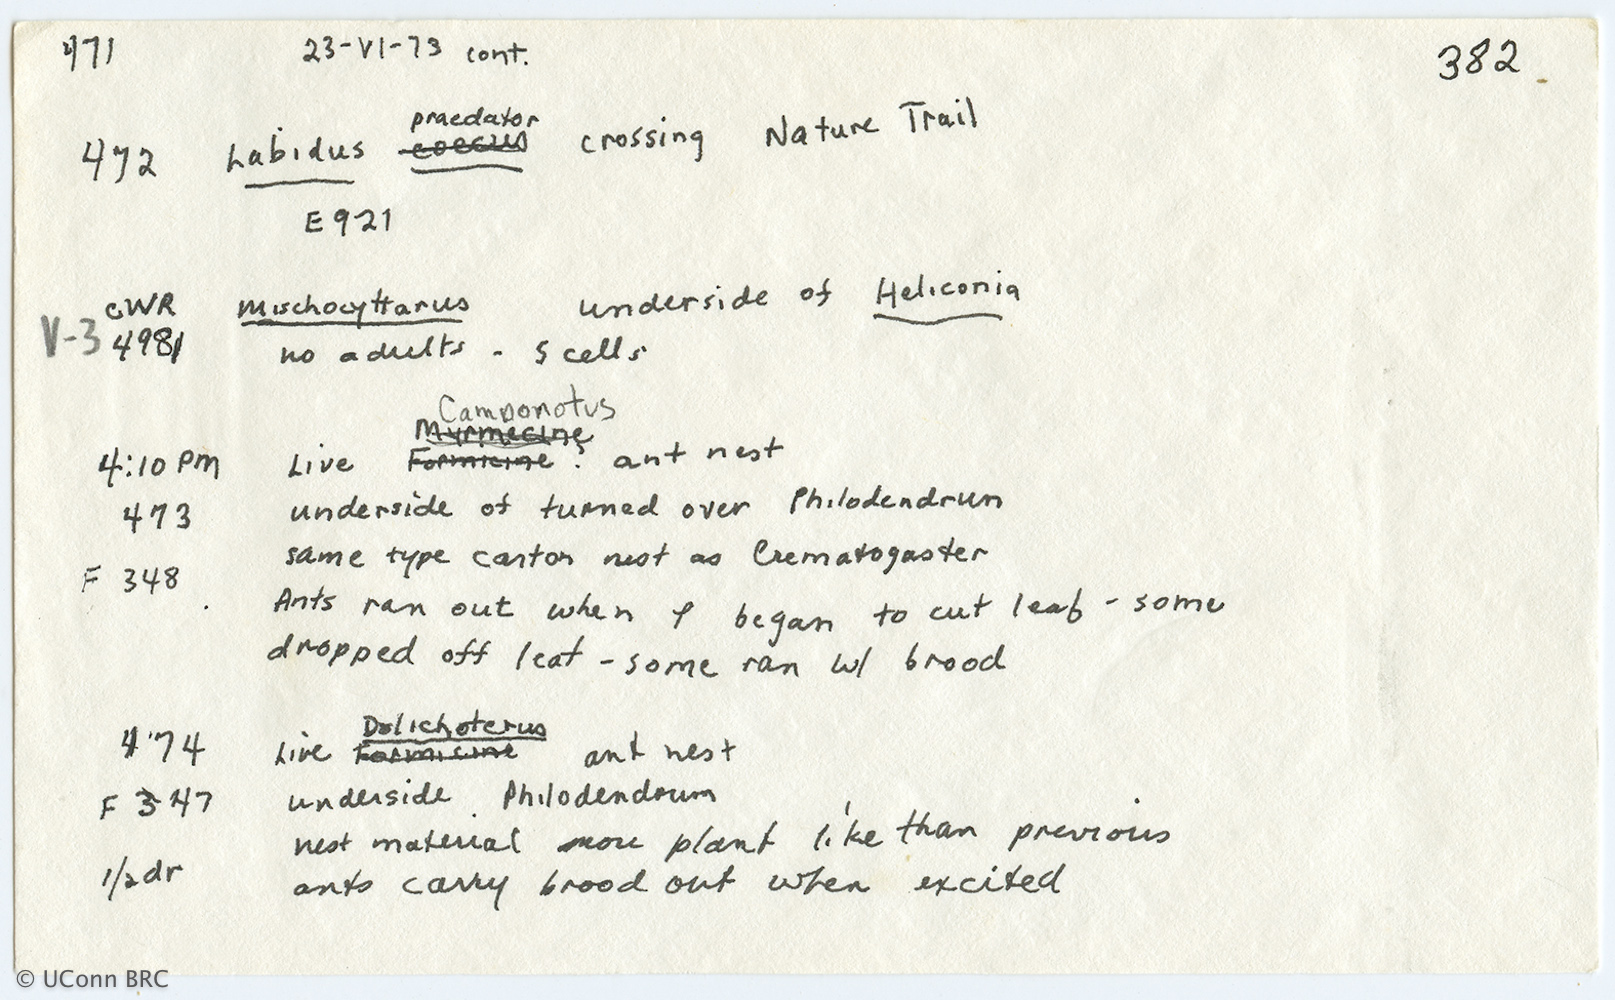 471 23-VI-73 cont. 382
praedator
472 Labidus coecus crossing Nature Trail
E921
CWR Mischocyttarus underside of Heliconia
V-3 4981 no adults - 5 cells
Camponotus
Myrmecine
4:10 PM Live Formicine ? ant nest
473 underside of turned over Philodendrun
same type carton nest as Crematogaster
F 348
Ants ran out when I began to cut leaf - some
dropped off leaf - some ran w/ brood
Dolichoterus
474 Live Formicine ant nest
F 347 underside Philodendrum
nest material more plant like than previous
1/2 dr ants carry brood out when excited
© UConn BRC